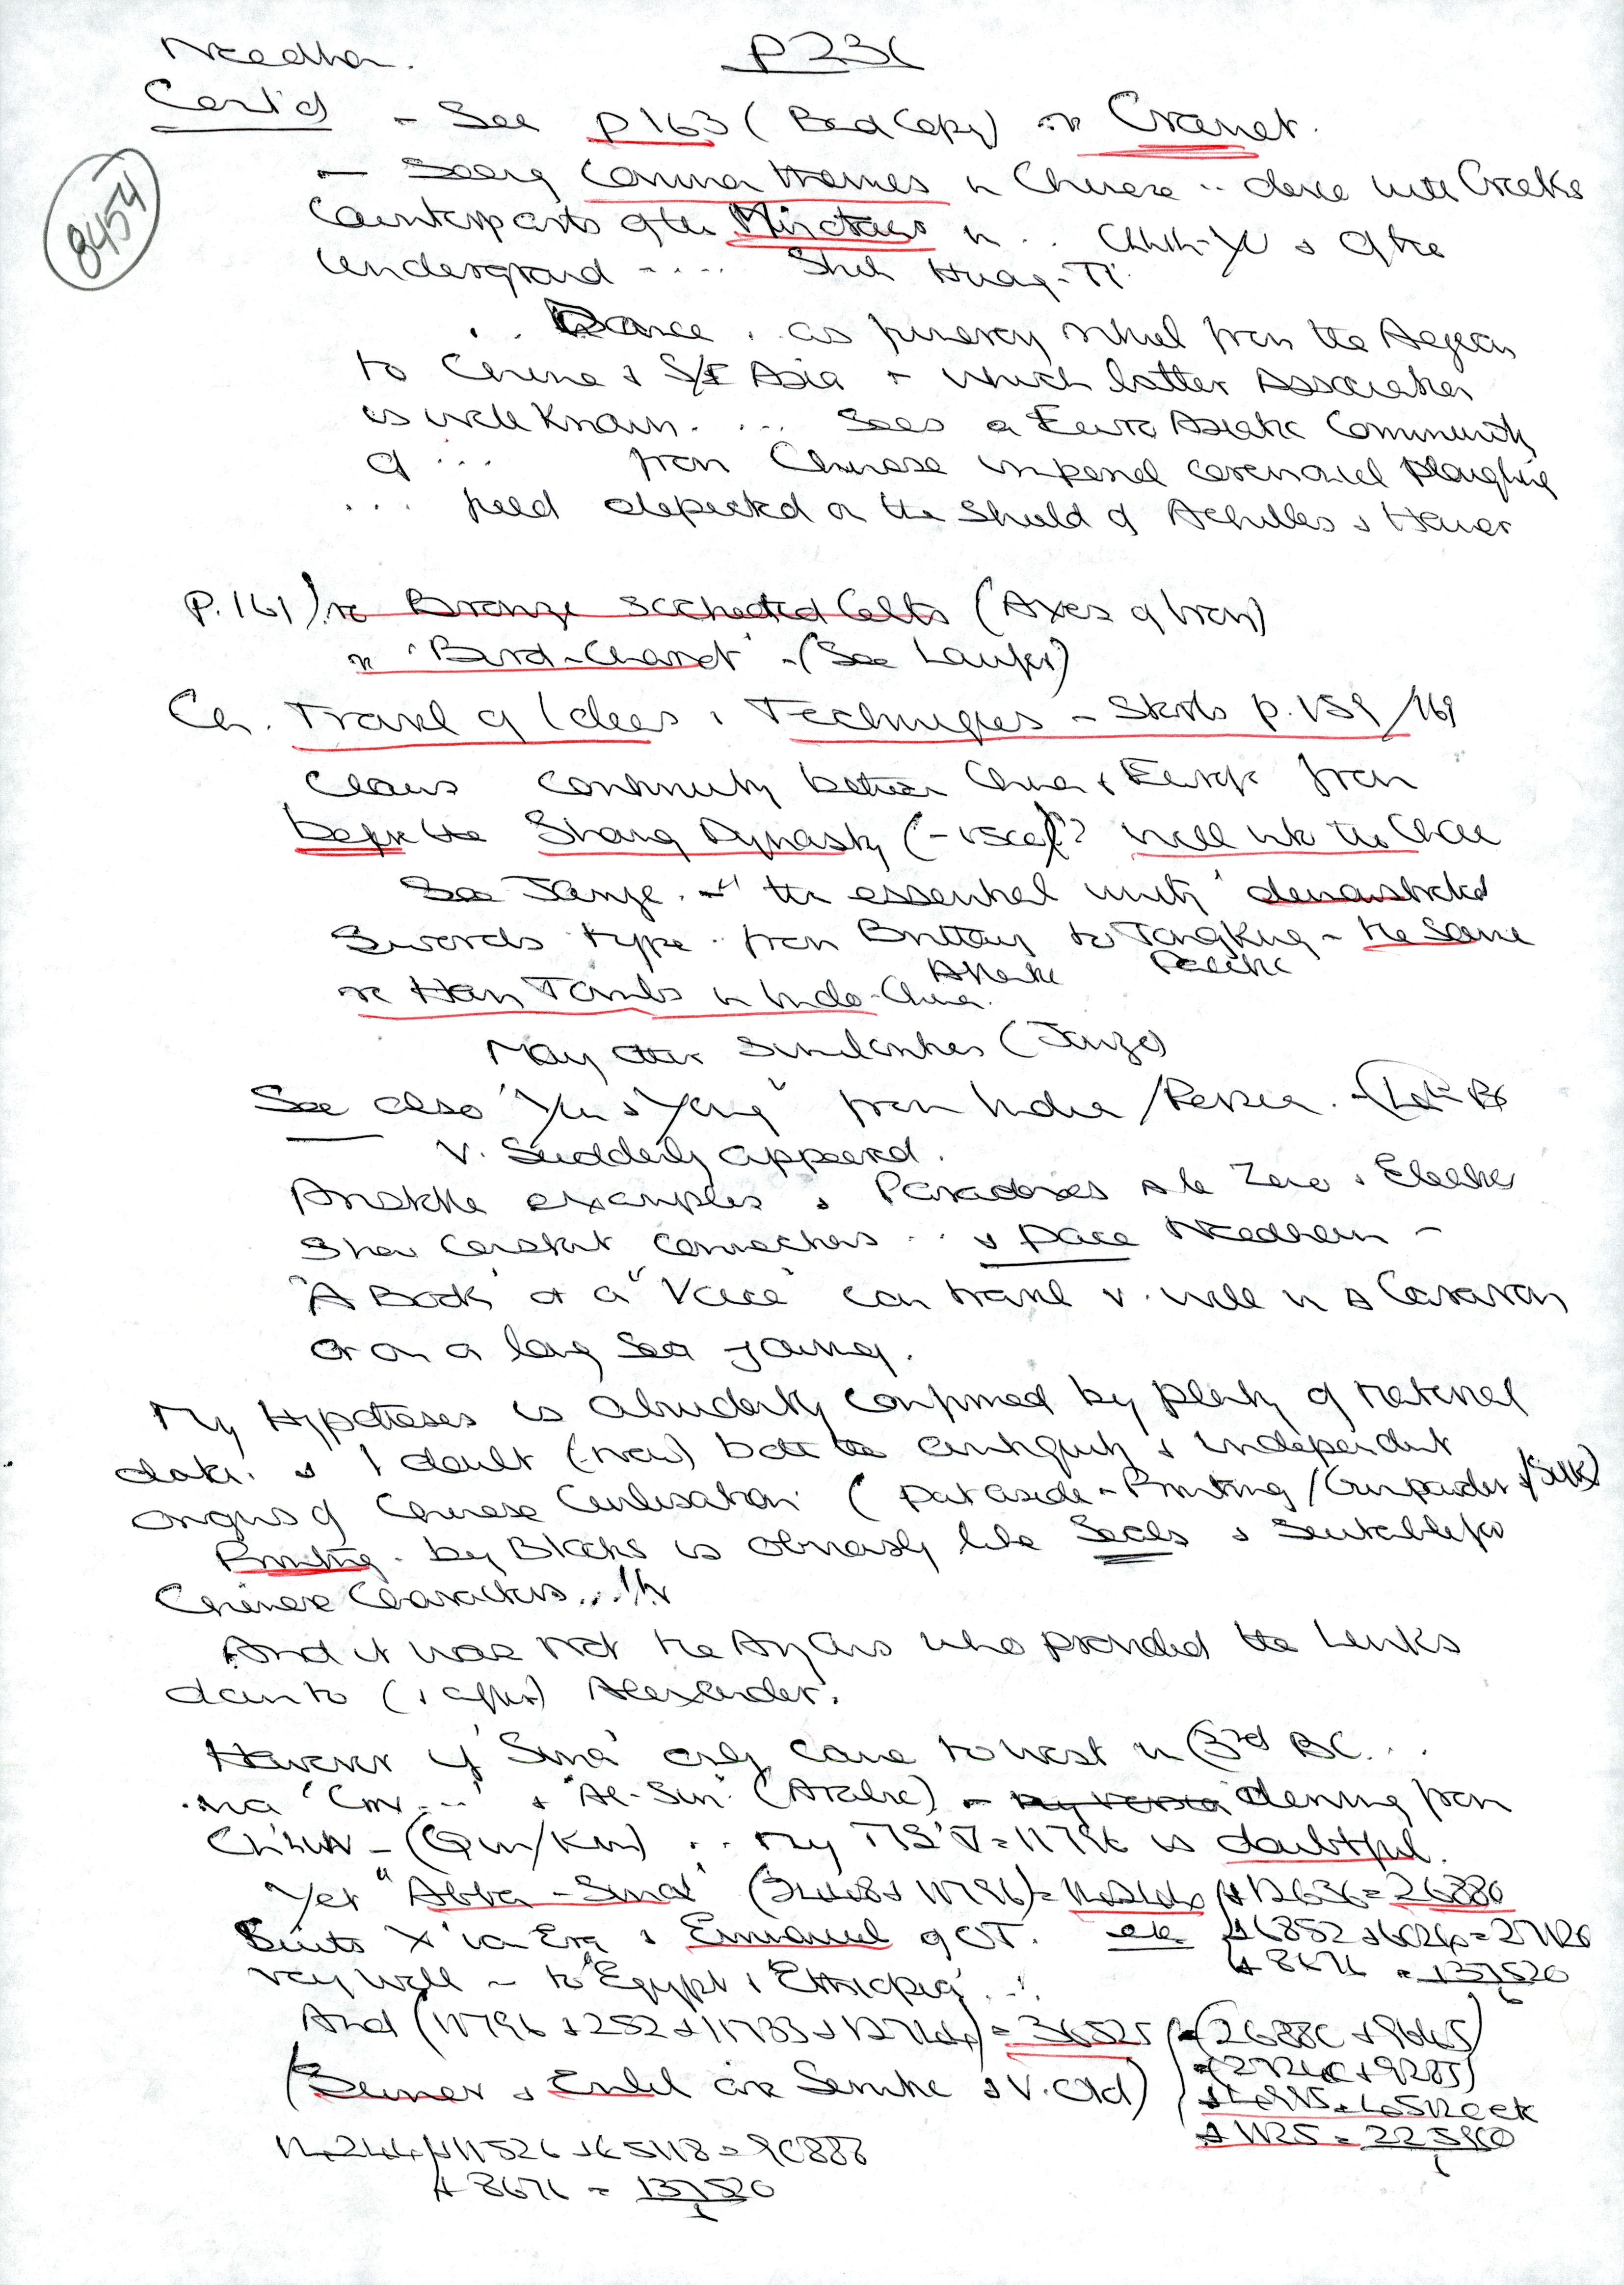 Needham. P231
Cont'd - See p163 (Bad Copy) re Granet.
8454
- Seeing Common themes in Chinese .. dance with Greeks
Counterparts of the Minotaur in .. Chhih-Yu & of the
Underground ---- Shih Huang-Ti
.. Dance . as funerary ritual from the Aegean
to China & S/E Asia - which latter Association
is well known. ... Sees a Euro Asiatic Community
of ... from Chinese imperial ceremonial ploughing
... field depicted on the Shield of Achilles & Homer
P.161) re Bronze socketed Celts (Axes of Iron)
re 'Bird-Chariot' - (See Laufer)
Ch. Travel of Ideas & Techniques - Starts p.159/169
Claims continuity between China & Europe from
before the Shang Dynasty (-1500)? well into the Chou
See Janse. - "the essential unity" demonstrated
Swords type .. from Brittany to Tongking - the same
Atlantic Pacific
re Han Tombs in Indo-China.
Many other similarities (Janse)
See also "Yin & Yang" from India / Persia. -
V. Suddenly appeared.
Aristotle examples & Paradoxes à la Zeno & Eleatics
Show Constant Connections .. & pace Needham -
"A Book" or a "Voice" can travel v. well in a Caravan
or on a long Sea journey.
My Hypotheses is abundantly confirmed by plenty of material
data. & I doubt (now) both the antiquity & independent
origins of Chinese Civilisation (put aside - Printing / Gunpowder & /Silk)
Printing - by Blocks is obviously like Seals & suitable for
Chinese Characters...!!
And it was not the Aryans who provided the links
down to (& after) Alexander.
However if 'Sina' only came to west in (3rd BC...
& "Al-Sin" (Arabic) - my version deriving from
Ch'in - (Qin/Kin) .. my = 11796 is doubtful.
Yet "Abba-Sina" + 12636 = 26880
Suits X'ian Era & Emmanuel of OT. etc + 6852
very well - to "Egypt & Ethiopia" ..! + 8676 = 137520
And (11796 + 252 + 11733 + = 36525 = (26880 + 9645)
(Sumer & Enlil are Semitic & V. Old) = (27240 + 9285)
+ 1125 = 225
+ 11526 + 65118 = 90888
+ 8676 = 137520